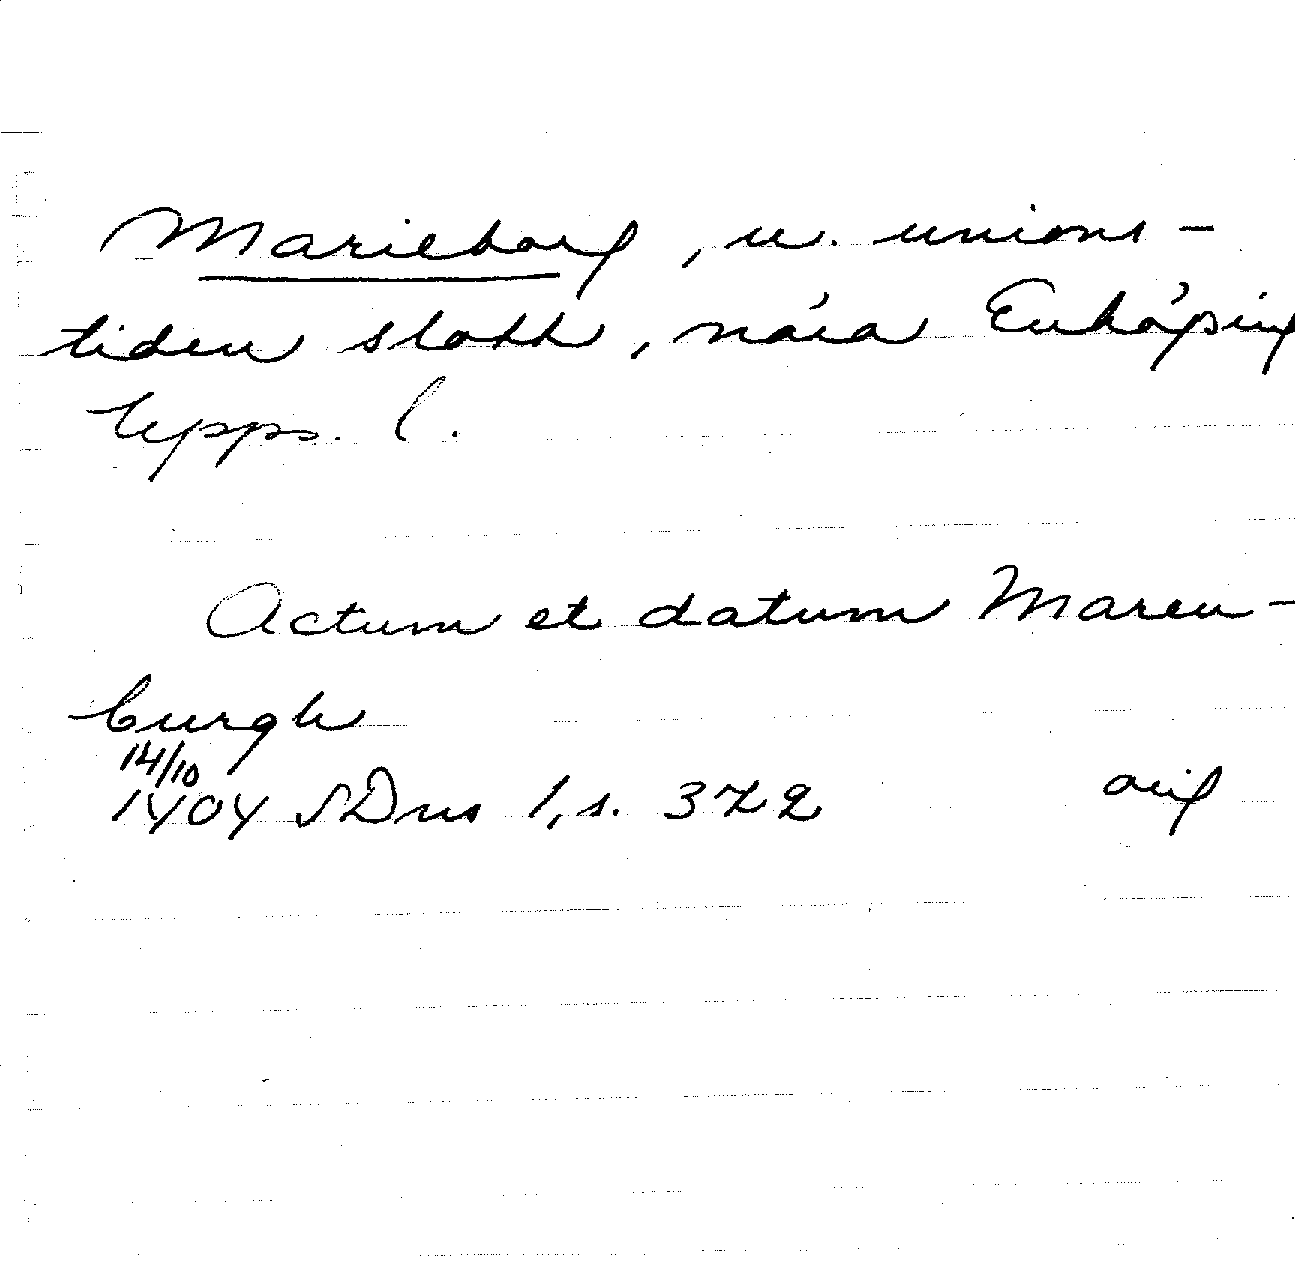 Marieborg, u. unions-
tiden slott, nära Enköping
Upps. l.
Actum et datum Maren-
burgh
14/10
1404 SDns 1, s. 372 orig